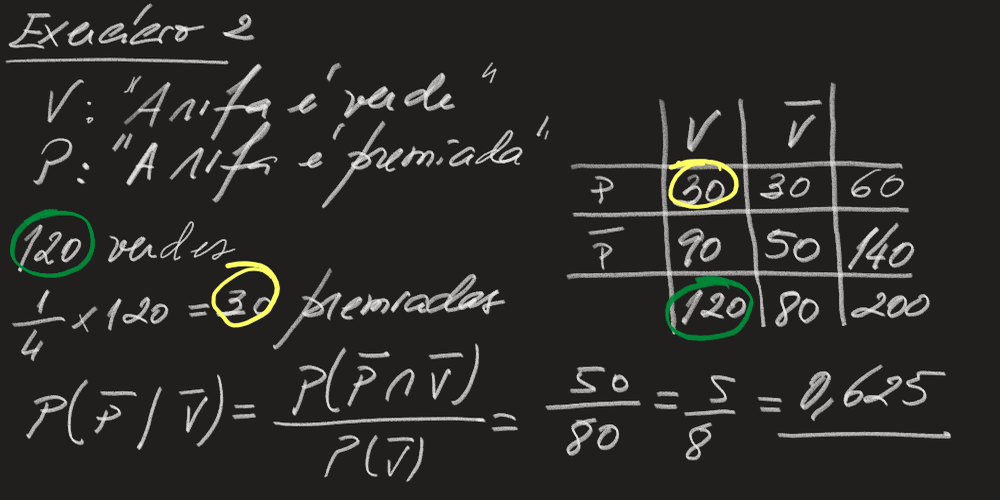 Exercício 2
V: "A rifa é verde"
P: "A rifa é premiada"
120 verdes
1/4 × 120 = 30 premiadas
V V̅
P 30 30 60
P̅ 90 50 140
120 80 200
P(P̅ | V̅) = P(P̅ ∩ V̅) / P(V̅) = 50/80 = 5/8 = 0,625